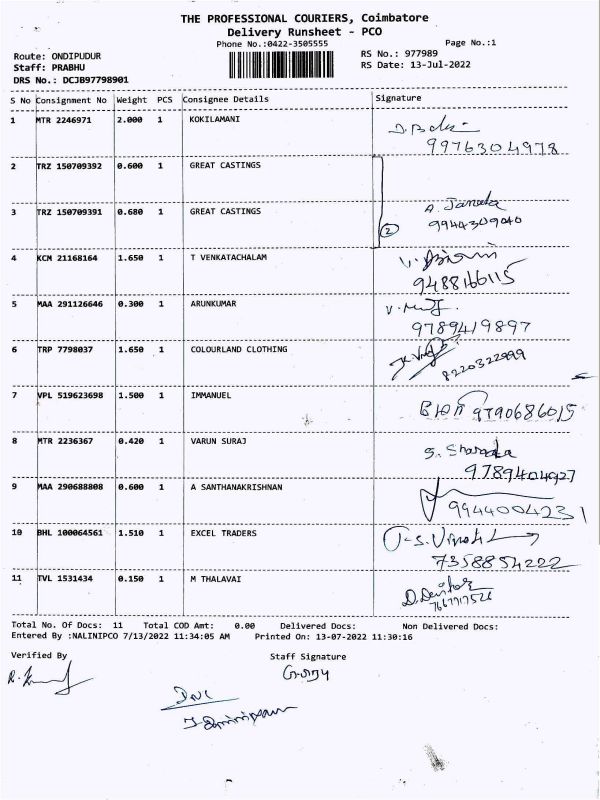 THE PROFESSIONAL COURIERS, Coimbatore
Delivery Runsheet - PCO
Phone No.:0422-3505555
Page No.:1
Route: ONDIPUDUR
Staff: PRABHU
DRS No.: DCJB97798901
RS No.: 977989
RS Date: 13-Jul-2022
S No Consignment No Weight PCS Consignee Details Signature
1 MTR 2246971 2.000 1 KOKILAMANI
9976304978
2 TRZ 150709392 0.600 1 GREAT CASTINGS
3 TRZ 150709391 0.680 1 GREAT CASTINGS
2 9944309040
4 KCM 21168164 1.650 1 T VENKATACHALAM
9488166115
5 MAA 291126646 0.300 1 ARUNKUMAR
9789419897
6 TRP 7798037 1.650 1 COLOURLAND CLOTHING
8220322999
7 VPL 519623698 1.500 1 IMMANUEL
9790686015
8 MTR 2236367 0.420 1 VARUN SURAJ
S. Sharada
9789404927
9 MAA 290688808 0.600 1 A SANTHANAKRISHNAN
9944004231
10 BHL 100064561 1.510 1 EXCEL TRADERS
7358854222
11 TVL 1531434 0.150 1 M THALAVAI
Total No. Of Docs: 11 Total COD Amt: 0.00 Delivered Docs: Non Delivered Docs:
Entered By :NALINIPCO 7/13/2022 11:34:05 AM Printed On: 13-07-2022 11:30:16
Verified By Staff Signature